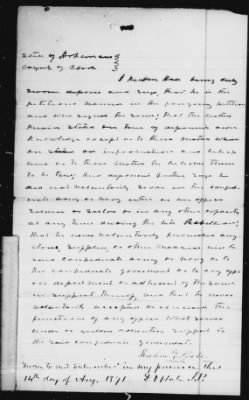 State of Arkansas
County of Clark
I Reuben Hale being duly
sworn deposes and says that he is the
petitioner named in the foregoing petition
and who signed the same; that the matters
therein stated are true of deponent's own
knowledge except as to those matters which
are stated on information and belief
and as to those matters he believes them
to be true; and deponent further says he
did not voluntarily serve in the confed-
erate army or navy either as an officer
or in any other capacity
at any time during the late Rebellion;
that he never voluntarily furnished any
stores, supplies, or other material aid to
said confederate army or navy or to
the confederate government or to any offi-
cer department or adherent of the same
in support thereof, and that he never
voluntarily accepted or exercised the
functions of any office
under or yielded voluntary support to
the said confederate government.
Reuben Hale
Sworn to and subscribed in my presence this
14th day of Aug. 1871